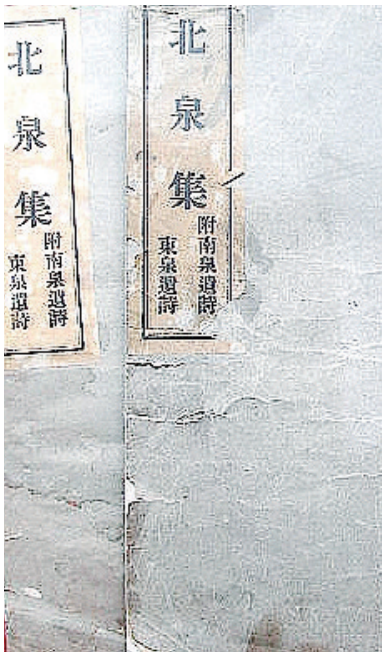 北泉集
附南泉遺詩
東泉遺詩
北泉集
附南泉遺詩
東泉遺詩